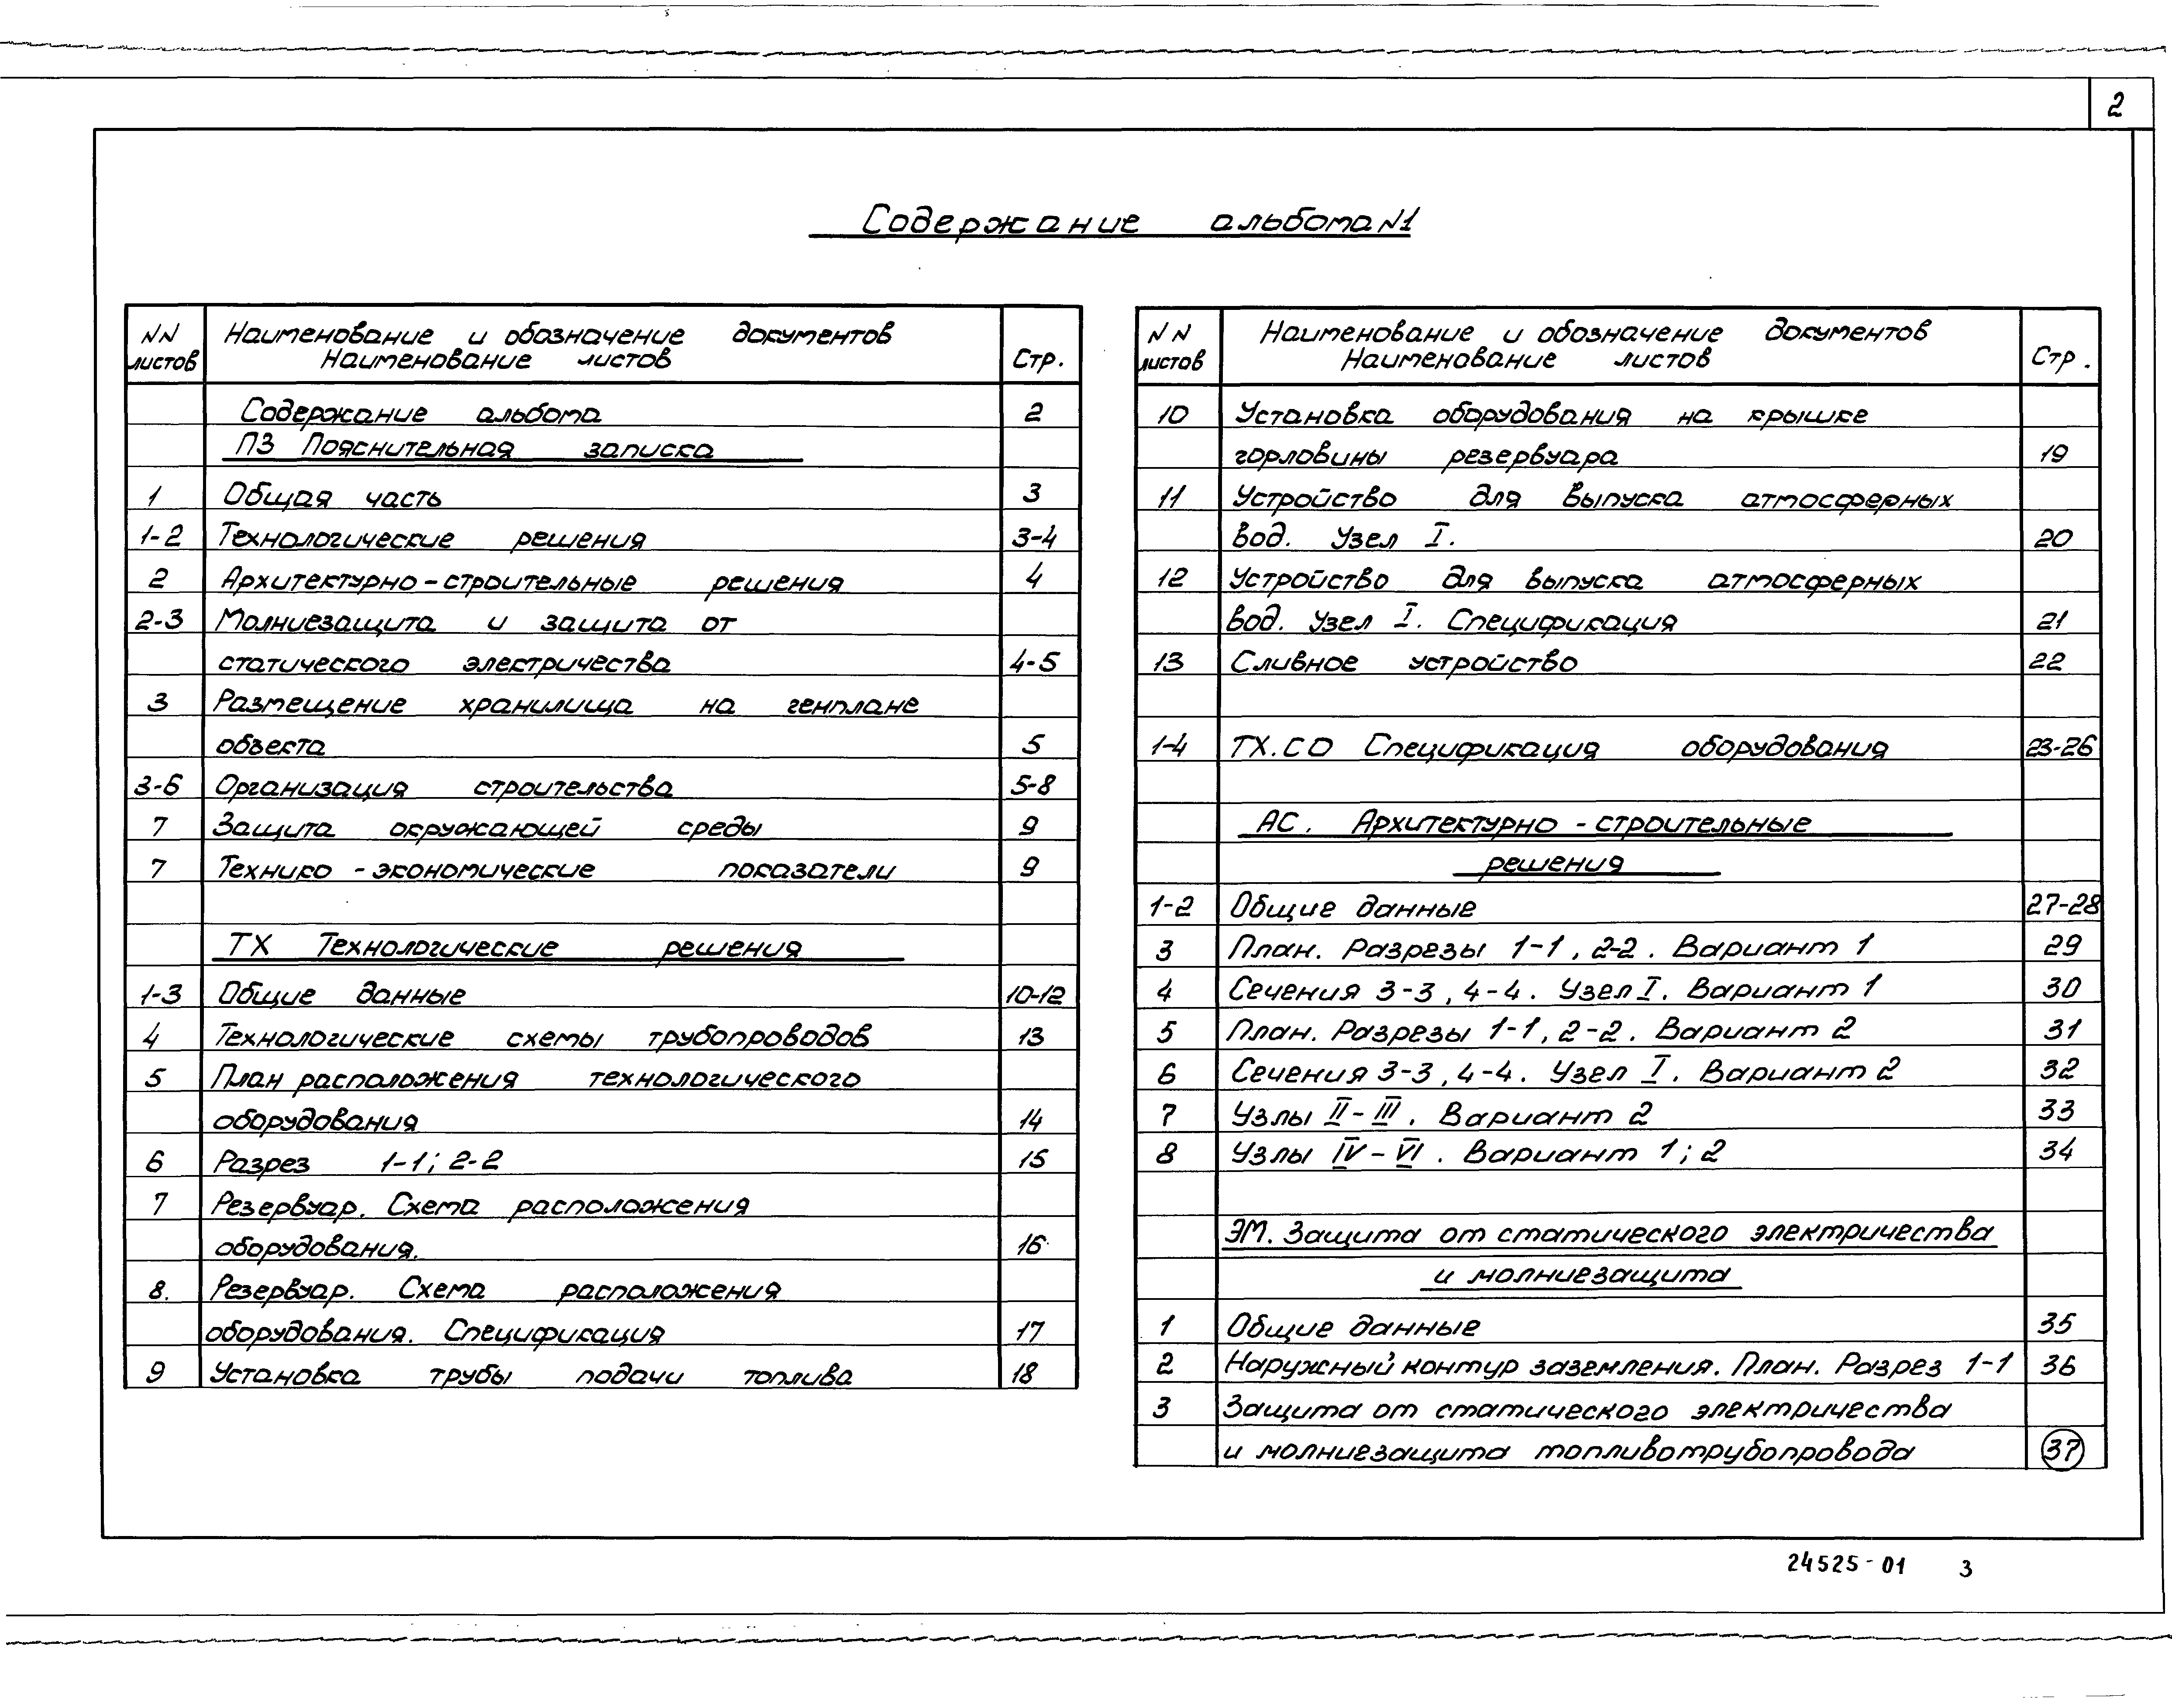 2
Содержание альбома N1
NN листов Наименование и обозначение документов Наименование листов Стр.
Содержание альбома 2
ПЗ Пояснительная записка
1 Общая часть 3
1-2 Технологические решения 3-4
2 Архитектурно-строительные решения 4
2-3 Молниезащита и защита от
статического электричества 4-5
3 Размещение хранилища на генплане
объекта 5
3-6 Организация строительства 5-8
7 Защита окружающей среды 9
7 Технико-экономические показатели 9
ТХ Технологические решения
1-3 Общие данные 10-12
4 Технологические схемы трубопроводов 13
5 План расположения технологического
оборудования 14
6 Разрез 1-1; 2-2 15
7 Резервуар. Схема расположения
оборудования. 16
8. Резервуар. Схема расположения
оборудования. Спецификация 17
9 Установка трубы подачи топлива 18
NN листов Наименование и обозначение документов Наименование листов Стр.
10 Установка оборудования на крышке
горловины резервуара 19
11 Устройство для выпуска атмосферных
вод. Узел I. 20
12 Устройство для выпуска атмосферных
вод. Узел I. Спецификация 21
13 Сливное устройство 22
1-4 ТХ.СО Спецификация оборудования 23-26
АС. Архитектурно-строительные
решения
1-2 Общие данные 27-28
3 План. Разрезы 1-1, 2-2. Вариант 1 29
4 Сечения 3-3, 4-4. Узел I. Вариант 1 30
5 План. Разрезы 1-1, 2-2. Вариант 2 31
6 Сечения 3-3, 4-4. Узел I. Вариант 2 32
7 Узлы II-III. Вариант 2 33
8 Узлы IV-VI. Вариант 1; 2 34
ЭМ. Защита от статического электричества
и молниезащита
1 Общие данные 35
2 Наружный контур заземления. План. Разрез 1-1 36
3 Защита от статического электричества
и молниезащита топливотрубопровода 37
24525-01 3